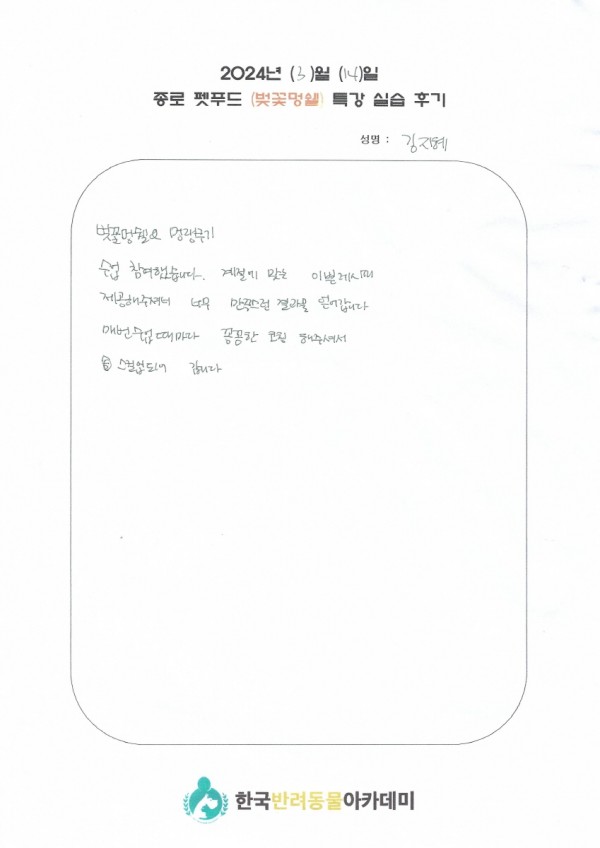 2024년 (3)월 (14)일
종로 펫푸드 (벚꽃멍쉘) 특강 실습 후기
성명 : 김지혜
벚꽃멍쉘
수업 참여했습니다. 계절에 맞는 이쁜레시피
제공해주셔서 너무 만족스런 결과물 얻어갑니다
매번수업때마다 꼼꼼한 코칭 해주셔서
스킬업되어 갑니다
한국반려동물아카데미